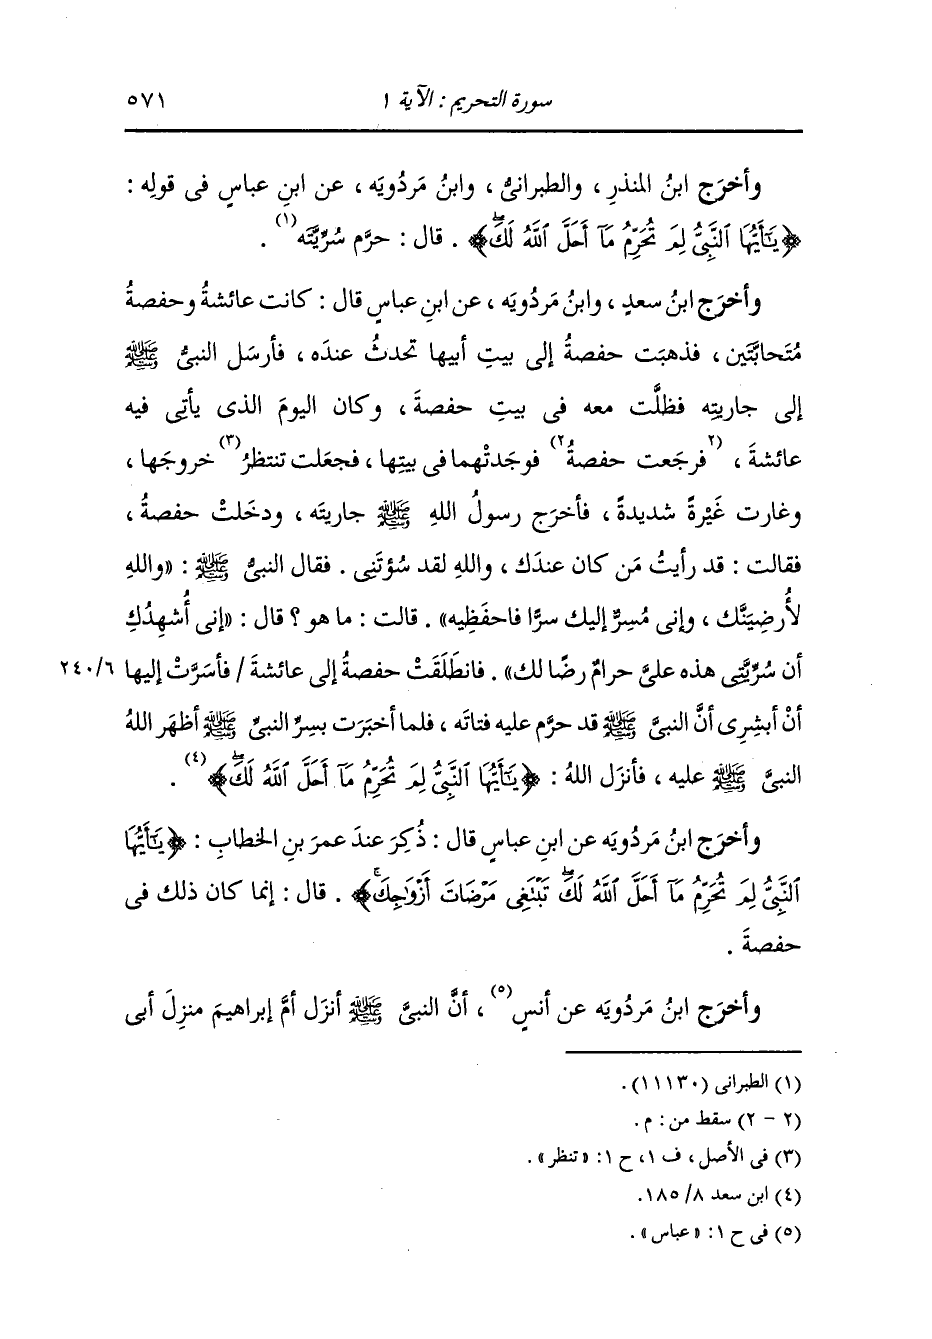 سورة التحريم : الآية ١ ٥٧١
وأخرَج ابنُ المنذرِ ، والطبرانىُّ ، وابنُ مَردُويَه ، عن ابنِ عباسٍ فى قولِه :
﴿يَٰٓأَيُّهَا ٱلنَّبِىُّ لِمَ تُحَرِّمُ مَآ أَحَلَّ ٱللَّهُ لَكَۖ﴾ . قال : حرَّم سُرِّيَّتَه(١) .
وأخرَج ابنُ سعدٍ ، وابنُ مَردُويَه ، عن ابنِ عباسٍ قال : كانت عائشةُ وحفصةُ
مُتَحابَّتَين ، فذهبَت حفصةُ إلى بيتِ أبيها تحدثُ عندَه ، فأرسَل النبىُّ ﷺ
إلى جاريتِه فظلَّت معه فى بيتِ حفصةَ ، وكان اليومَ الذى يأتِى فيه
عائشةَ ، (٢فرجَعت حفصةُ٢) فوجَدتْهما فى بيتِها ، فجعَلت تنتظرُ(٣) خروجَها ،
وغارت غَيْرةً شديدةً ، فأخرَج رسولُ اللهِ ﷺ جاريتَه ، ودخَلتْ حفصةُ ،
فقالت : قد رأيتُ مَن كان عندَك ، واللهِ لقد سُؤتَنِى . فقال النبىُّ ﷺ : «واللهِ
لأُرضِيَنَّك ، وإنى مُسِرٌّ إليك سرًّا فاحفَظِيه» . قالت : ما هو ؟ قال : «إنى أُشهِدُكِ
أن سُرِّيَّتِى هذه علىَّ حرامٌ رضًا لك» . فانطَلَقَتْ حفصةُ إلى عائشةَ / فأسَرَّتْ إليها ٢٤٠/٦
أنْ أبشِرِى أنَّ النبىَّ ﷺ قد حرَّم عليه فتاتَه ، فلما أخبَرَت بسِرِّ النبىِّ ﷺ أظهَر اللهُ
النبىَّ ﷺ عليه ، فأنزَل اللهُ : ﴿يَٰٓأَيُّهَا ٱلنَّبِىُّ لِمَ تُحَرِّمُ مَآ أَحَلَّ ٱللَّهُ لَكَۖ﴾(٤) .
وأخرَج ابنُ مَردُويَه عن ابنِ عباسٍ قال : ذُكِرَ عندَ عمرَ بنِ الخطابِ : ﴿يَٰٓأَيُّهَا
ٱلنَّبِىُّ لِمَ تُحَرِّمُ مَآ أَحَلَّ ٱللَّهُ لَكَۖ تَبْتَغِى مَرْضَاتَ أَزْوَٰجِكَۚ﴾ . قال : إنما كان ذلك فى
حفصةَ .
وأخرَج ابنُ مَردُويَه عن أنسٍ(٥) ، أنَّ النبىَّ ﷺ أنزَل أمَّ إبراهيمَ منزِلَ أبى
(١) الطبرانى (١١١٣٠) .
(٢ - ٢) سقط من : م .
(٣) فى الأصل ، ف ١ ، ح ١ : «تنظر» .
(٤) ابن سعد ٨/ ١٨٥ .
(٥) فى ح ١ : «عباس» .